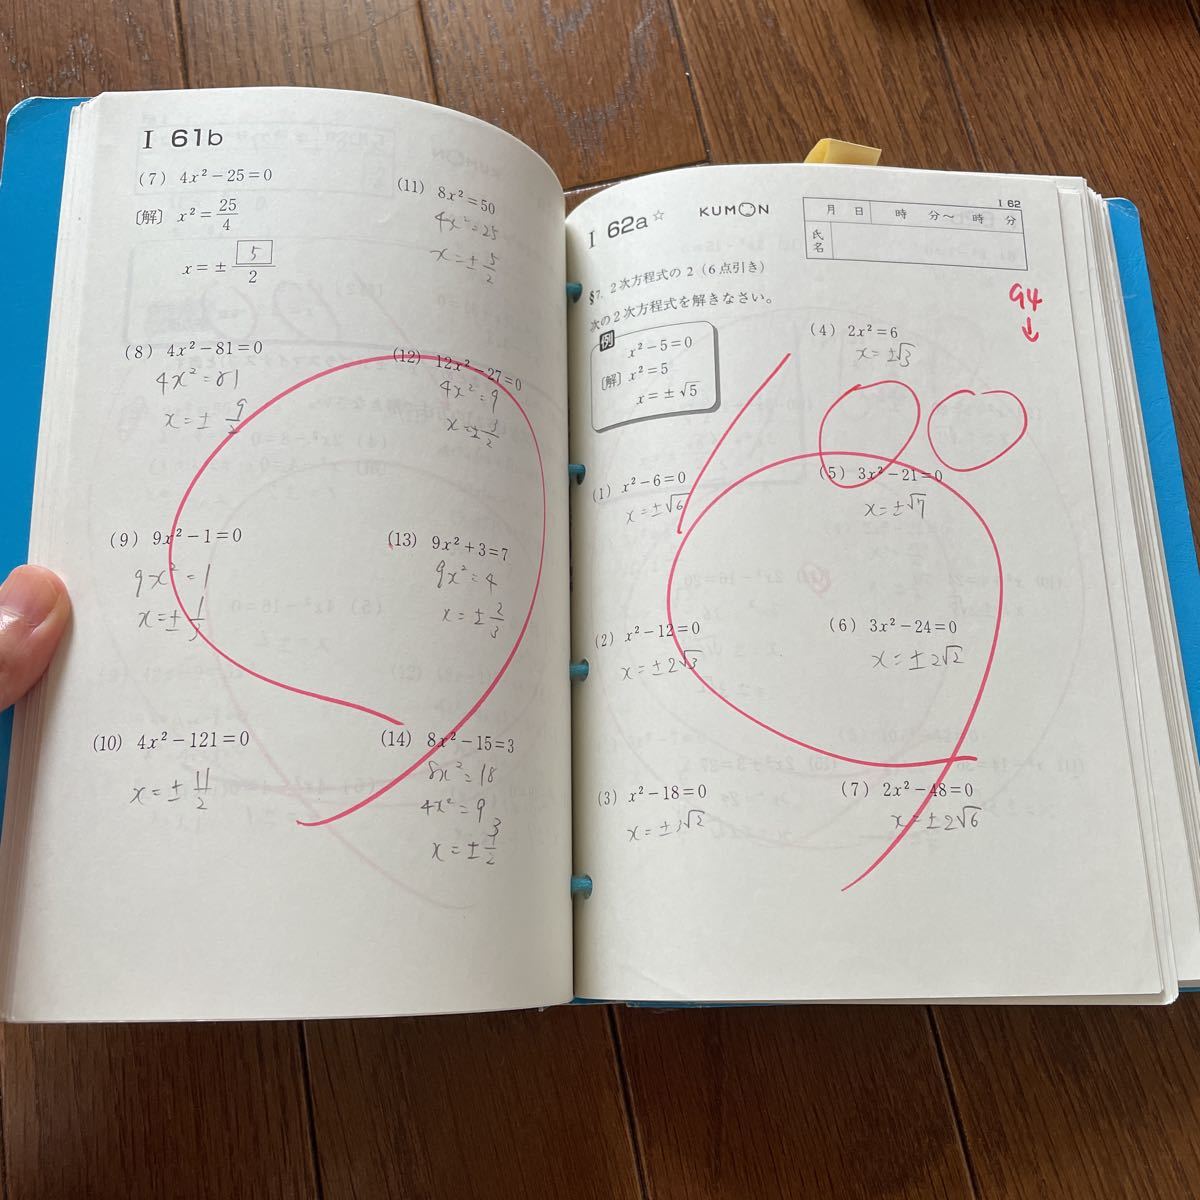 I 61b
(7) 4x²−25=0
〔解〕 x²=25/4
x=± 5/2
(8) 4x²−81=0
4x²=81
x=± 9/2
(9) 9x²−1=0
9x²=1
x=± 1/3
(10) 4x²−121=0
x=± 11/2
(11) 8x²=50
4x²=25
x=± 5/2
(12) 12x²−27=0
4x²=9
x=± 3/2
(13) 9x²+3=7
9x²=4
x=± 2/3
(14) 8x²−15=3
8x²=18
4x²=9
x=± 3/2
I 62a☆
KUMON
I 62
月 日 時 分〜 時 分
氏名
§7. 2次方程式の2 (6点引き)
次の2次方程式を解きなさい。
例
x²−5=0
〔解〕 x²=5
x=±√5
94
↓
100
(1) x²−6=0
x=±√6
(2) x²−12=0
x=±2√3
(3) x²−18=0
x=±3√2
(4) 2x²=6
x=±√3
(5) 3x²−21=0
x=±√7
(6) 3x²−24=0
x=±2√2
(7) 2x²−48=0
x=±2√6